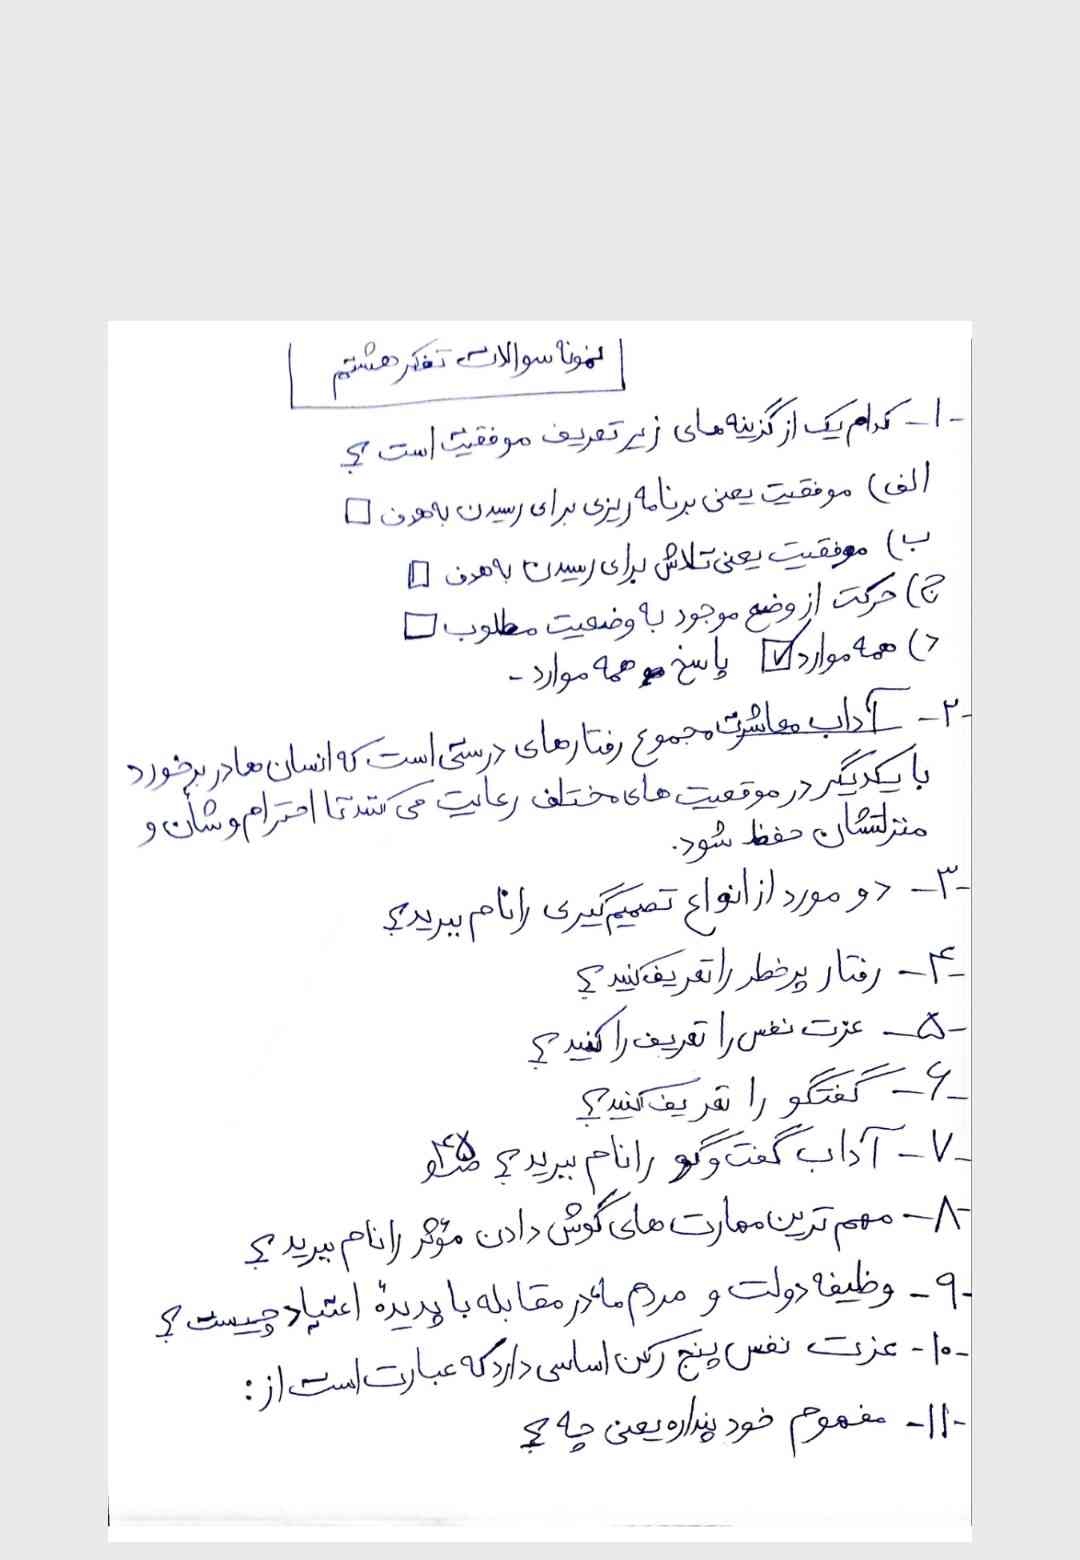 نمونه سوالات تفکر هشتم
۱- کدام یک از گزینه های زیر تعریف موفقیت است؟
الف) موفقیت یعنی برنامه ریزی برای رسیدن به هدف □
ب) موفقیت یعنی تلاش برای رسیدن به هدف □
ج) حرکت از وضع موجود به وضعیت مطلوب □
د) همه موارد ☑ پاسخ همه موارد -
۲- آداب معاشرت مجموع رفتارهای درستی است که انسان ها در برخورد
با یکدیگر در موقعیت های مختلف رعایت می کنند تا احترام و شأن و
منزلتشان حفظ شود.
۳- دو مورد از انواع تصمیم گیری را نام ببرید؟
۴- رفتار پرخطر را تعریف کنید؟
۵- عزت نفس را تعریف را کنید؟
۶- گفتگو را تعریف کنید؟
۷- آداب گفت و گو را نام ببرید؟ ۴۵
۸- مهم ترین مهارت های گوش دادن مؤثر را نام ببرید؟
۹- وظیفه دولت و مردم ما در مقابله با پدیدهٔ اعتیاد چیست؟
۱۰- عزت نفس پنج رکن اساسی دارد که عبارت است از:
۱۱- مفهوم خود پنداره یعنی چه؟